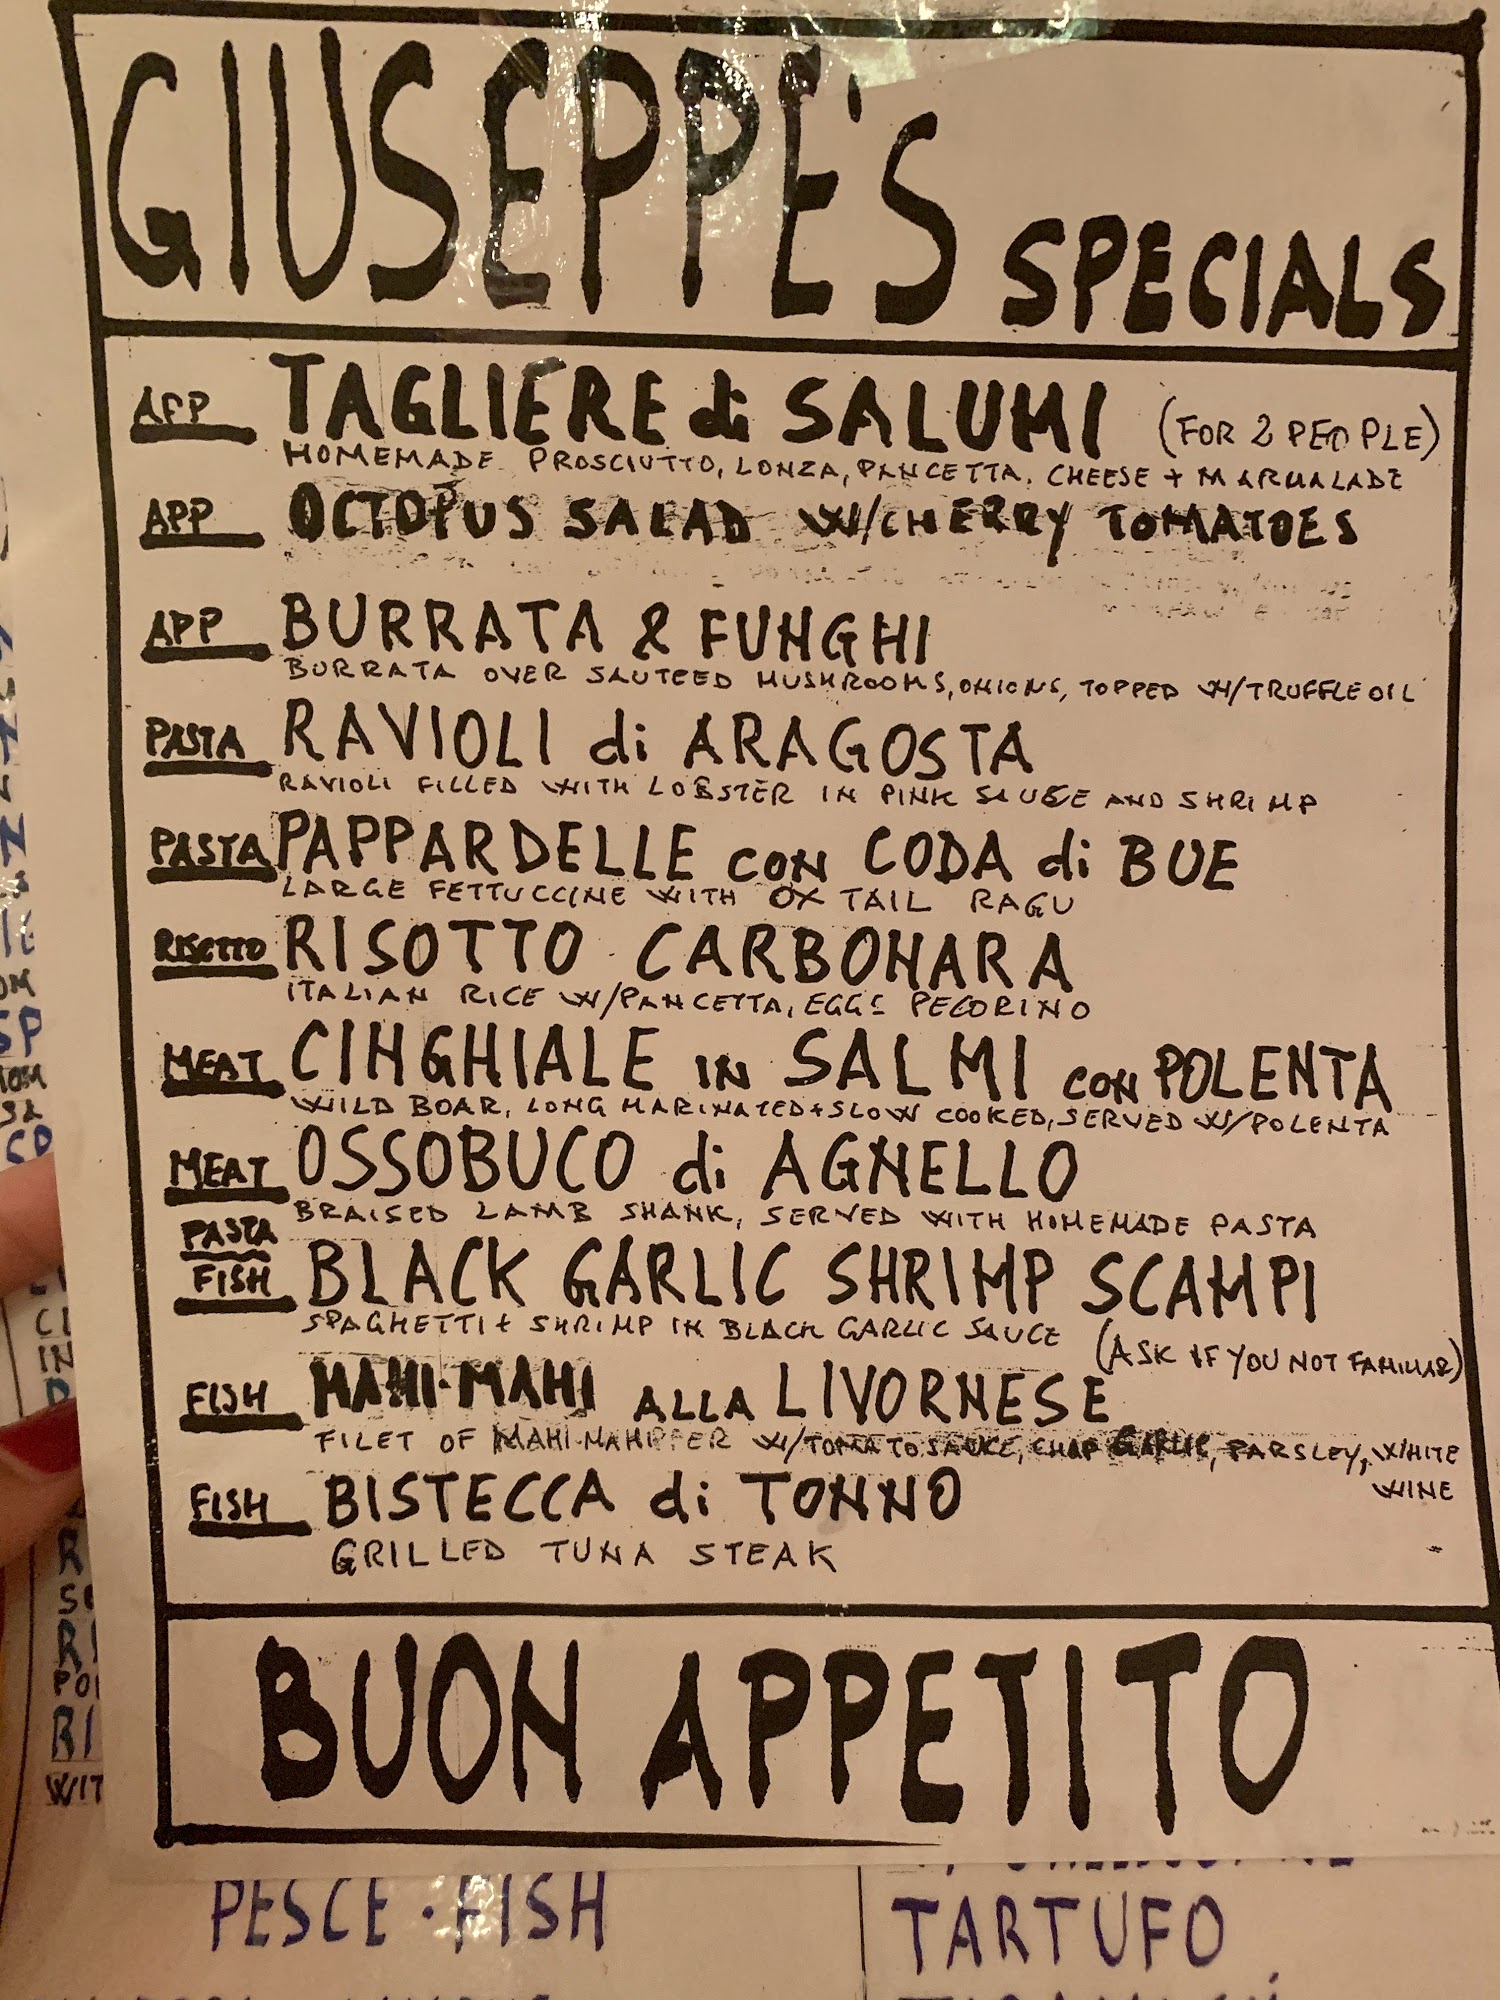 GIUSEPPE'S SPECIALS
APP TAGLIERE di SALUMI (FOR 2 PEOPLE)
HOMEMADE PROSCIUTTO, LONZA, PANCETTA, CHEESE + MARMALADE
APP OCTOPUS SALAD W/CHERRY TOMATOES
APP BURRATA & FUNGHI
BURRATA OVER SAUTEED MUSHROOMS, ONIONS, TOPPED W/TRUFFLE OIL
PASTA RAVIOLI di ARAGOSTA
RAVIOLI FILLED WITH LOBSTER IN PINK SAUCE AND SHRIMP
PASTA PAPPARDELLE CON CODA di BUE
LARGE FETTUCCINE WITH OX TAIL RAGU
RISOTTO RISOTTO CARBONARA
ITALIAN RICE W/PANCETTA, EGGS PECORINO
MEAT CINGHIALE IN SALMI CON POLENTA
WILD BOAR, LONG MARINATED + SLOW COOKED, SERVED W/POLENTA
MEAT OSSOBUCO di AGNELLO
BRAISED LAMB SHANK, SERVED WITH HOMEMADE PASTA
PASTA
FISH BLACK GARLIC SHRIMP SCAMPI
SPAGHETTI + SHRIMP IN BLACK GARLIC SAUCE (ASK IF YOU NOT FAMILIAR)
FISH MAHI-MAHI ALLA LIVORNESE
FILET OF MAHI-MAHI W/TOMATO SAUCE, CHOP GARLIC, PARSLEY, WHITE
WINE
FISH BISTECCA di TONNO
GRILLED TUNA STEAK
BUON APPETITO
PESCE · FISH
TARTUFO